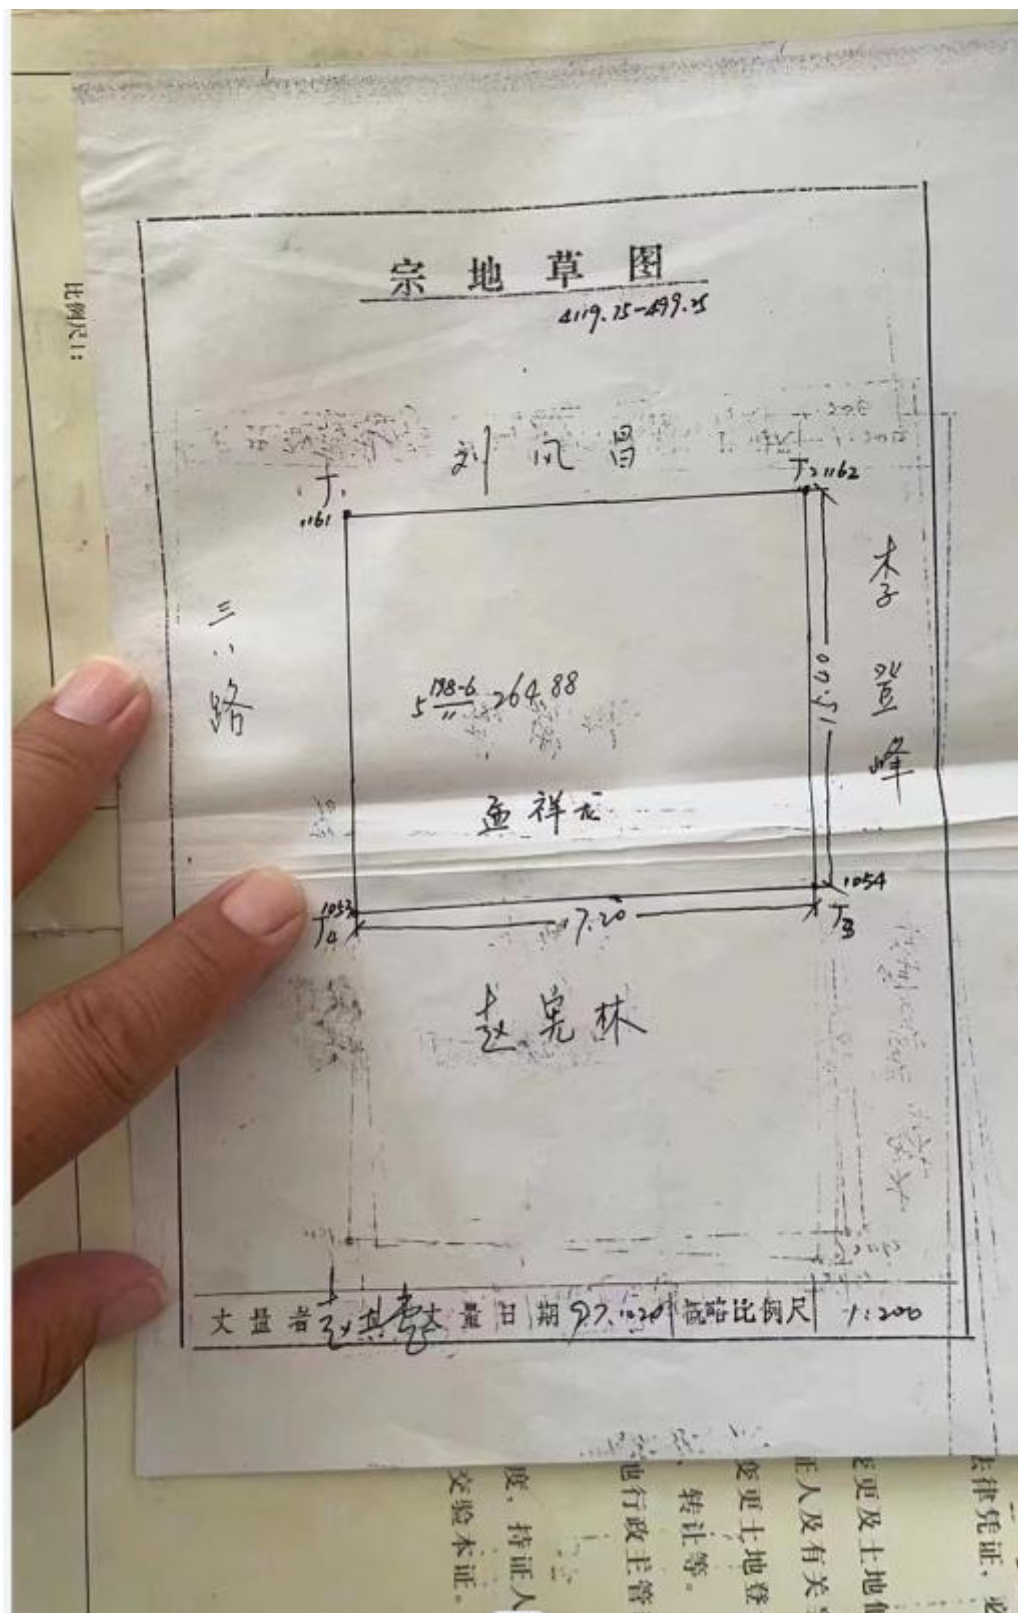 比例尺1:
宗地草图
4119.75-499.25
刘凤昌
J1
1161
J2 1162
三八路
李登峰
15.40
198-6
5 11 264.88
孟祥龙
1053
J4
17.20
1054
J3
赵宪林
丈量者 赵其 丈量日期 97.10.20 概略比例尺 1:200
法律凭证,必
变更及土地使
证人及有关
变更土地登
、转让等。
地行政主管
度,持证人
交验本证。